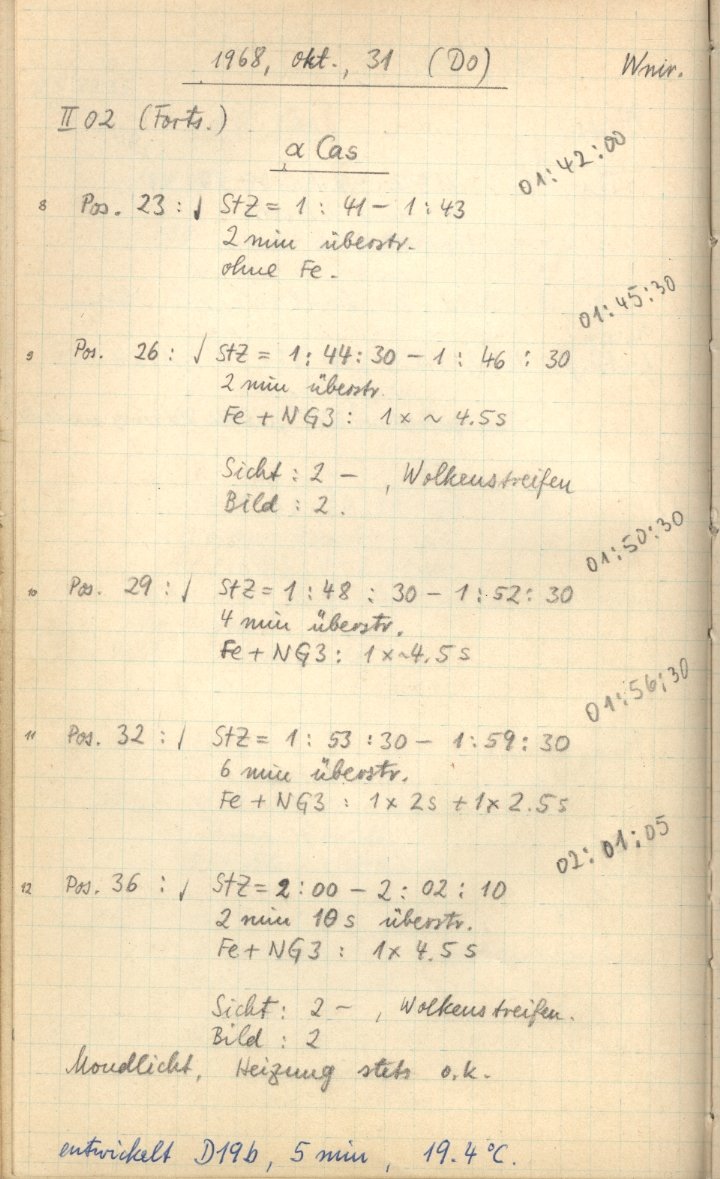 1968, Okt., 31 (Do)
II 02 (Forts.)
α Cas
01:42:00
8 Pos. 23 : √ StZ = 1 : 41 – 1 : 43
2 min überstr.
ohne Fe.
01:45:30
9 Pos. 26 : √ StZ = 1 : 44 : 30 – 1 : 46 : 30
2 min überstr.
Fe + NG3 : 1 x ~ 4.5 s
Sicht : 2 – , Wolkenstreifen
Bild : 2.
01:50:30
10 Pos. 29 : √ StZ = 1 : 48 : 30 – 1 : 52 : 30
4 min überstr.
Fe + NG3 : 1 x ~ 4.5 s
01:56:30
11 Pos. 32 : √ StZ = 1 : 53 : 30 – 1 : 59 : 30
6 min überstr.
Fe + NG3 : 1 x 2 s + 1 x 2.5 s
02:01:05
12 Pos. 36 : √ StZ = 2 : 00 – 2 : 02 : 10
2 min 10 s überstr.
Fe + NG3 : 1 x 4.5 s
Sicht : 2 – , Wolkenstreifen.
Bild : 2
Mondlicht, Heizung stets o.k.
entwickelt D19b, 5 min , 19.4 °C.